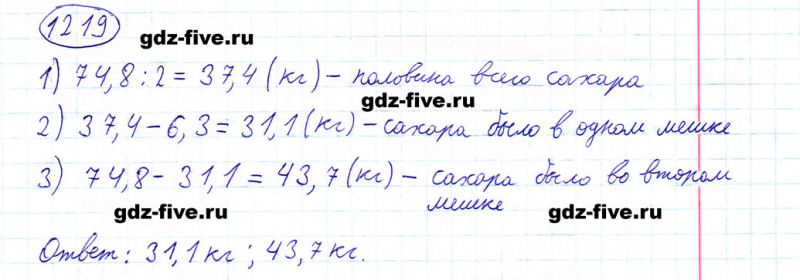 1219
gdz-five.ru
1) 74,8:2=37,4(кг)-половина всего сахара
gdz-five.ru
2) 37,4-6,3=31,1(кг)-сахара было в одном мешке
3) 74,8-31,1=43,7(кг)-сахара было во втором
мешке
gdz-five.ru
gdz-five.ru
Ответ: 31,1кг; 43,7кг.